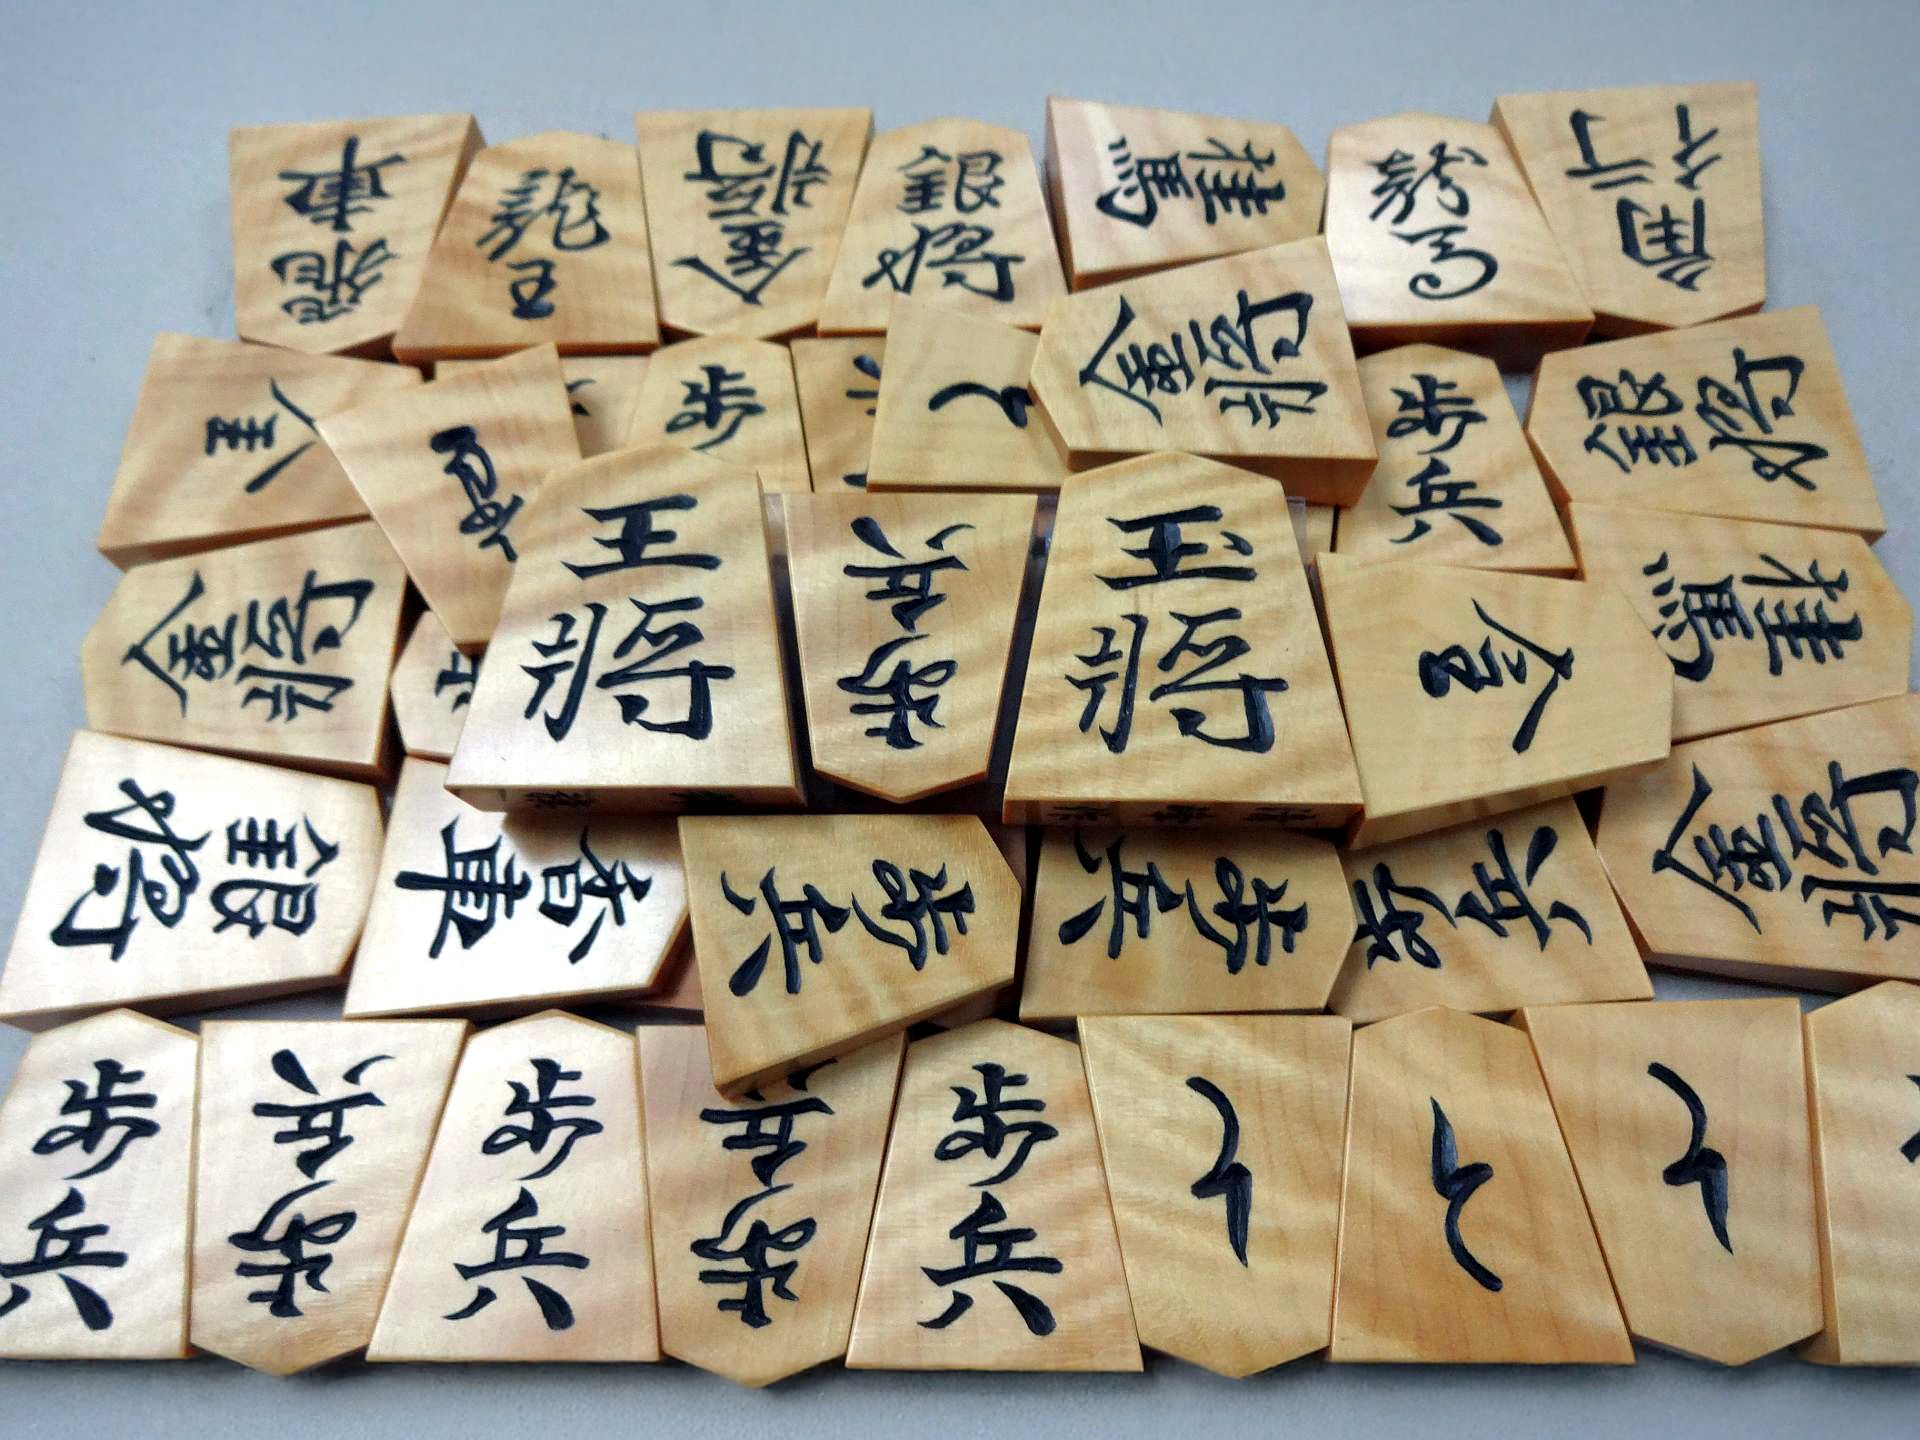 飛車
龍王
金将
銀将
桂馬
龍馬
角行
金将
歩
歩兵
銀将
王将
歩兵
玉将
桂馬
金将
銀将
香車
歩兵
歩兵
歩兵
金将
歩兵
歩兵
歩兵
歩兵
歩兵
と
と
と